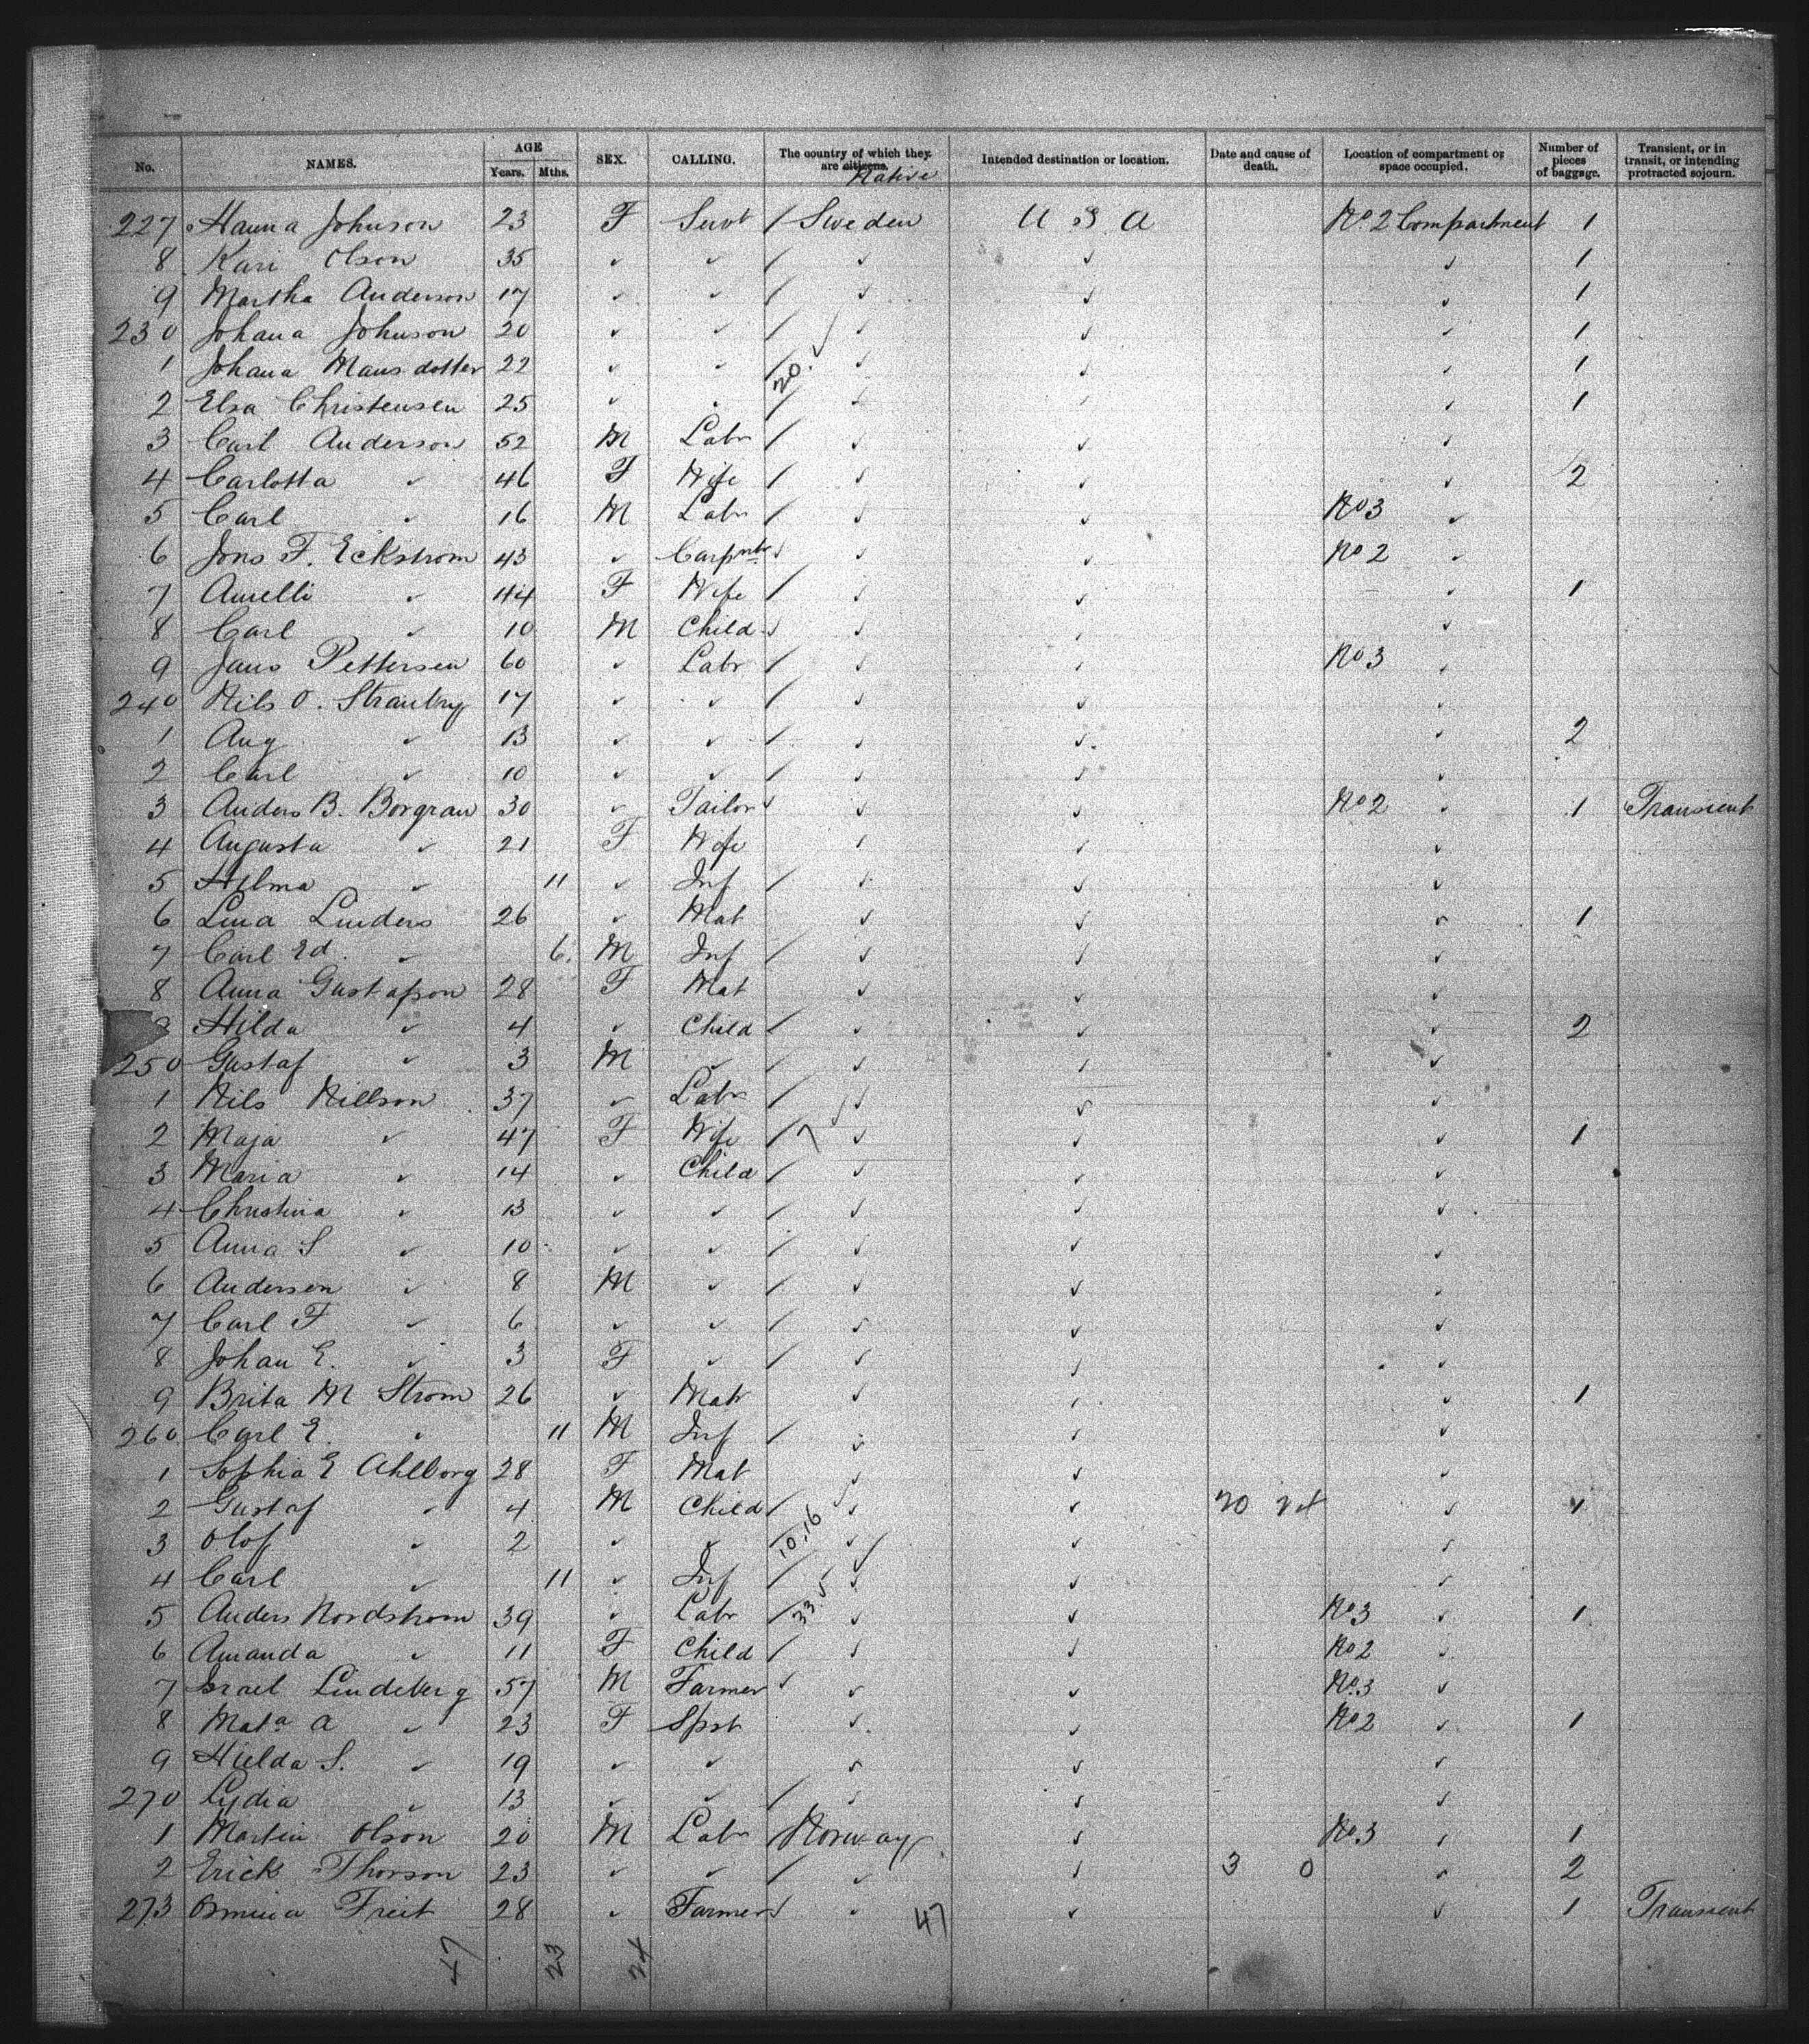 No. NAMES. AGE Years. Mths. SEX. CALLING. The country of which they are citizens. Native Intended destination or location. Date and cause of death. Location of compartment or space occupied. Number of pieces of baggage. Transient, or in transit, or intending protracted sojourn.
227 Hanna Johnson 23 F Servt / Sweden U S A No. 2 Compartment 1
8 Kari Olson 35 ✓ ✓ / ✓ ✓ ✓ 1
9 Martha Anderson 17 ✓ ✓ / ✓ ✓ ✓ 1
230 Johana Johnson 20 ✓ ✓ / ✓ ✓ ✓ 1
1 Johana Mansdotter 22 ✓ ✓ / 20. ✓ ✓ ✓ 1
2 Elsa Christensen 25 ✓ ✓ / ✓ ✓ ✓ 1
3 Carl Anderson 52 M Labr / ✓ ✓ ✓
4 Carlotta ✓ 46 F Wife / ✓ ✓ ✓ 2
5 Carl ✓ 16 M Labr / ✓ ✓ No 3 ✓
6 Jons F. Eckstrom 43 ✓ Carpntr ✓ ✓ ✓ No 2 ✓
7 Amelli ✓ 44 F Wife / ✓ ✓ ✓ 1
8 Carl ✓ 10 M Child ✓ ✓ ✓ ✓
9 Jans Pettersen 60 ✓ Labr / ✓ ✓ No 3 ✓
240 Nils O. 17 ✓ ✓ / ✓ ✓ ✓
1 Aug ✓ 13 ✓ ✓ / ✓ ✓ ✓ 2
2 Carl ✓ 10 ✓ ✓ / ✓ ✓ ✓
3 Anders B. Borgran 30 ✓ Tailor ✓ ✓ ✓ No 2 ✓ 1 Transient
4 Augusta ✓ 21 F Wife ✓ ✓ ✓
5 Hilma ✓ 11 ✓ Inf / ✓ ✓ ✓
6 Lina Linders 26 ✓ Mat ✓ ✓ ✓ 1
7 Carl Ed. ✓ 6. M Inf / ✓ ✓ ✓
8 Anna Gustafson 28 F Mat ✓ ✓ ✓
Hilda ✓ 4 ✓ Child / ✓ ✓ ✓ 2
250 Gustaf ✓ 3 M ✓ / ✓ ✓ ✓
1 Nils Nillson 37 ✓ Labr / ✓ ✓ ✓
2 Maja ✓ 47 F Wife / 7 ✓ ✓ ✓ 1
3 Maria ✓ 14 ✓ Child / ✓ ✓ ✓
4 Christina ✓ 13 ✓ ✓ / ✓ ✓ ✓
5 Anna S ✓ 10 ✓ ✓ / ✓ ✓ ✓
6 Andersen ✓ 8 M ✓ / ✓ ✓ ✓
7 Carl F ✓ 6 ✓ ✓ / ✓ ✓ ✓
8 Johan E. ✓ 3 F ✓ / ✓ ✓ ✓
9 Brita M Strom 26 ✓ Mat ✓ ✓ ✓ 1
260 Carl E. ✓ 11 M Inf / ✓ ✓ ✓
1 Sophia E Ahlborg 28 F Mat ✓ ✓ ✓
2 Gustaf ✓ 4 M Child / ✓ ✓ 20 ✓ 1
3 Olof ✓ 2 ✓ ✓ / 10.16 ✓ ✓ ✓
4 Carl ✓ 11 ✓ Inf / ✓ ✓ ✓
5 Anders Nordstrom 39 ✓ Labr / 33.5 ✓ ✓ No 3 ✓ 1
6 Amanda ✓ 11 F Child / ✓ ✓ No 2 ✓
7 Israel Lindeberg 57 M Farmer ✓ ✓ ✓ No. 3 ✓
8 Mata A ✓ 23 F Spst ✓ ✓ No 2 ✓ 1
9 Hielda S. ✓ 19 ✓ ✓ ✓ ✓ ✓
270 Lydia ✓ 13 ✓ ✓ / ✓ ✓ ✓
1 Martin Olson 20 M Labr / Norway ✓ No. 3 ✓ 1
2 Erick Thorson 23 ✓ ✓ / ✓ ✓ 3 0 ✓ 2
273 Freit 28 ✓ Farmer ✓ ✓ ✓ ✓ 1 Transient
47 23 24 47